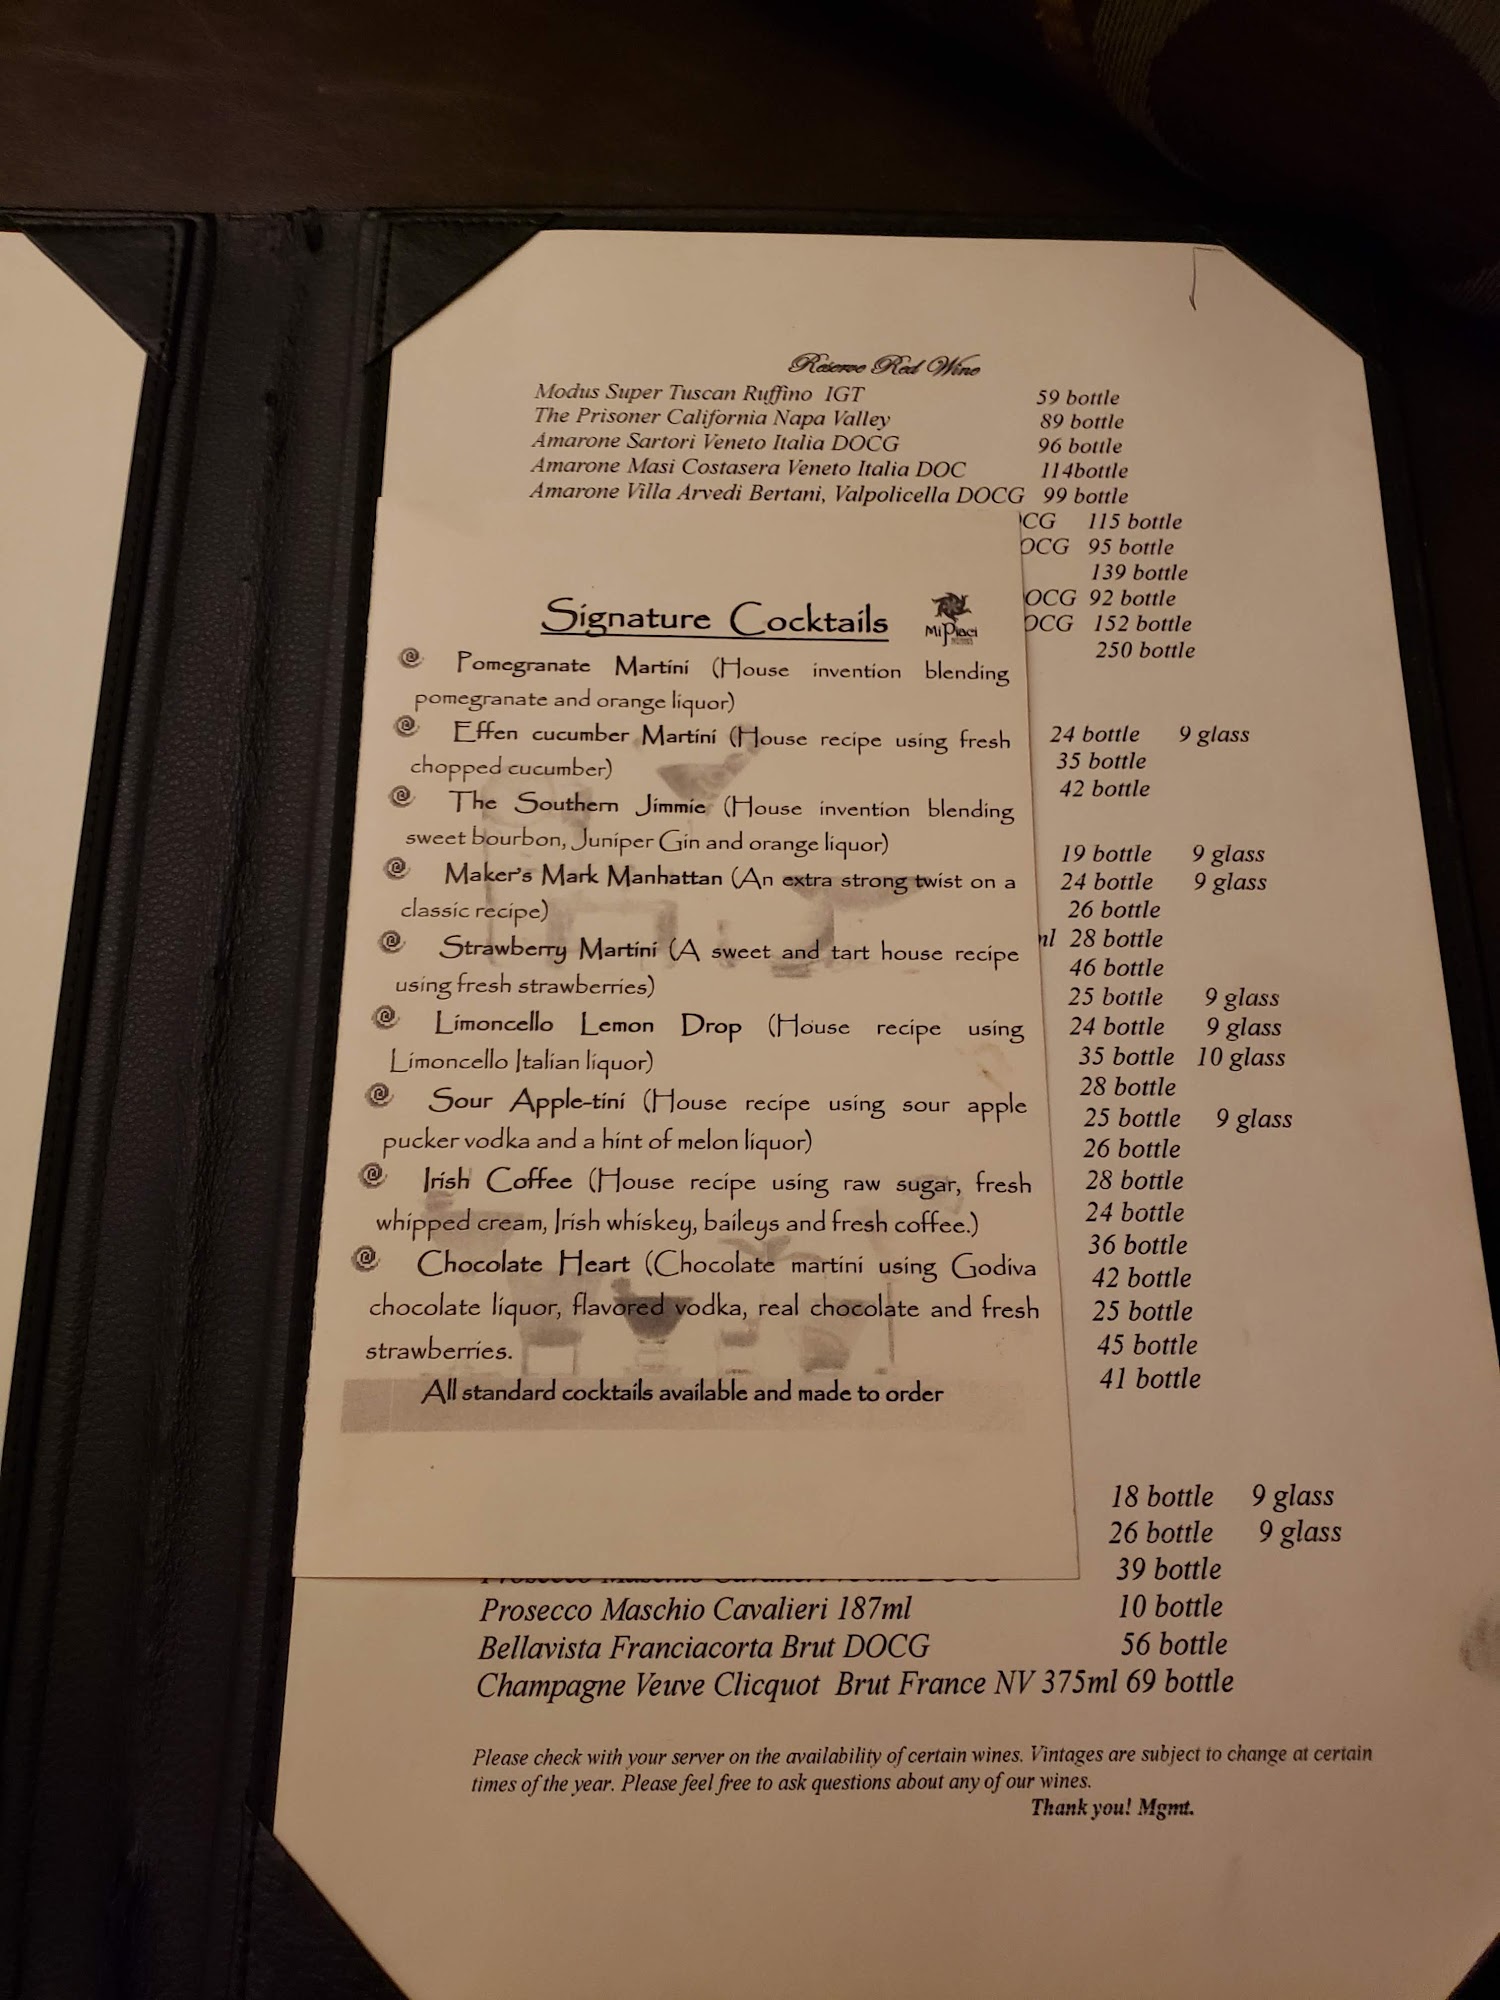 Reserve Red Wine
Modus Super Tuscan Ruffino IGT 59 bottle
The Prisoner California Napa Valley 89 bottle
Amarone Sartori Veneto Italia DOCG 96 bottle
Amarone Masi Costasera Veneto Italia DOC 114bottle
Amarone Villa Arvedi Bertani, Valpolicella DOCG 99 bottle
CG 115 bottle
OCG 95 bottle
139 bottle
OCG 92 bottle
OCG 152 bottle
250 bottle
Signature Cocktails
Mi Piaci
Pomegranate Martini (House invention blending
pomegranate and orange liquor)
Effen cucumber Martini (House recipe using fresh
chopped cucumber)
The Southern Jimmie (House invention blending
sweet bourbon, Juniper Gin and orange liquor)
Maker's Mark Manhattan (An extra strong twist on a
classic recipe)
Strawberry Martini (A sweet and tart house recipe
using fresh strawberries)
Limoncello Lemon Drop (House recipe using
Limoncello Italian liquor)
Sour Apple-tini (House recipe using sour apple
pucker vodka and a hint of melon liquor)
Irish Coffee (House recipe using raw sugar, fresh
whipped cream, Irish whiskey, baileys and fresh coffee.)
Chocolate Heart (Chocolate martini using Godiva
chocolate liquor, flavored vodka, real chocolate and fresh
strawberries.
All standard cocktails available and made to order
24 bottle 9 glass
35 bottle
42 bottle
19 bottle 9 glass
24 bottle 9 glass
26 bottle
ml 28 bottle
46 bottle
25 bottle 9 glass
24 bottle 9 glass
35 bottle 10 glass
28 bottle
25 bottle 9 glass
26 bottle
28 bottle
24 bottle
36 bottle
42 bottle
25 bottle
45 bottle
41 bottle
18 bottle 9 glass
26 bottle 9 glass
39 bottle
Prosecco Maschio Cavalieri 187ml 10 bottle
Bellavista Franciacorta Brut DOCG 56 bottle
Champagne Veuve Clicquot Brut France NV 375ml 69 bottle
Please check with your server on the availability of certain wines. Vintages are subject to change at certain
times of the year. Please feel free to ask questions about any of our wines.
Thank you! Mgmt.